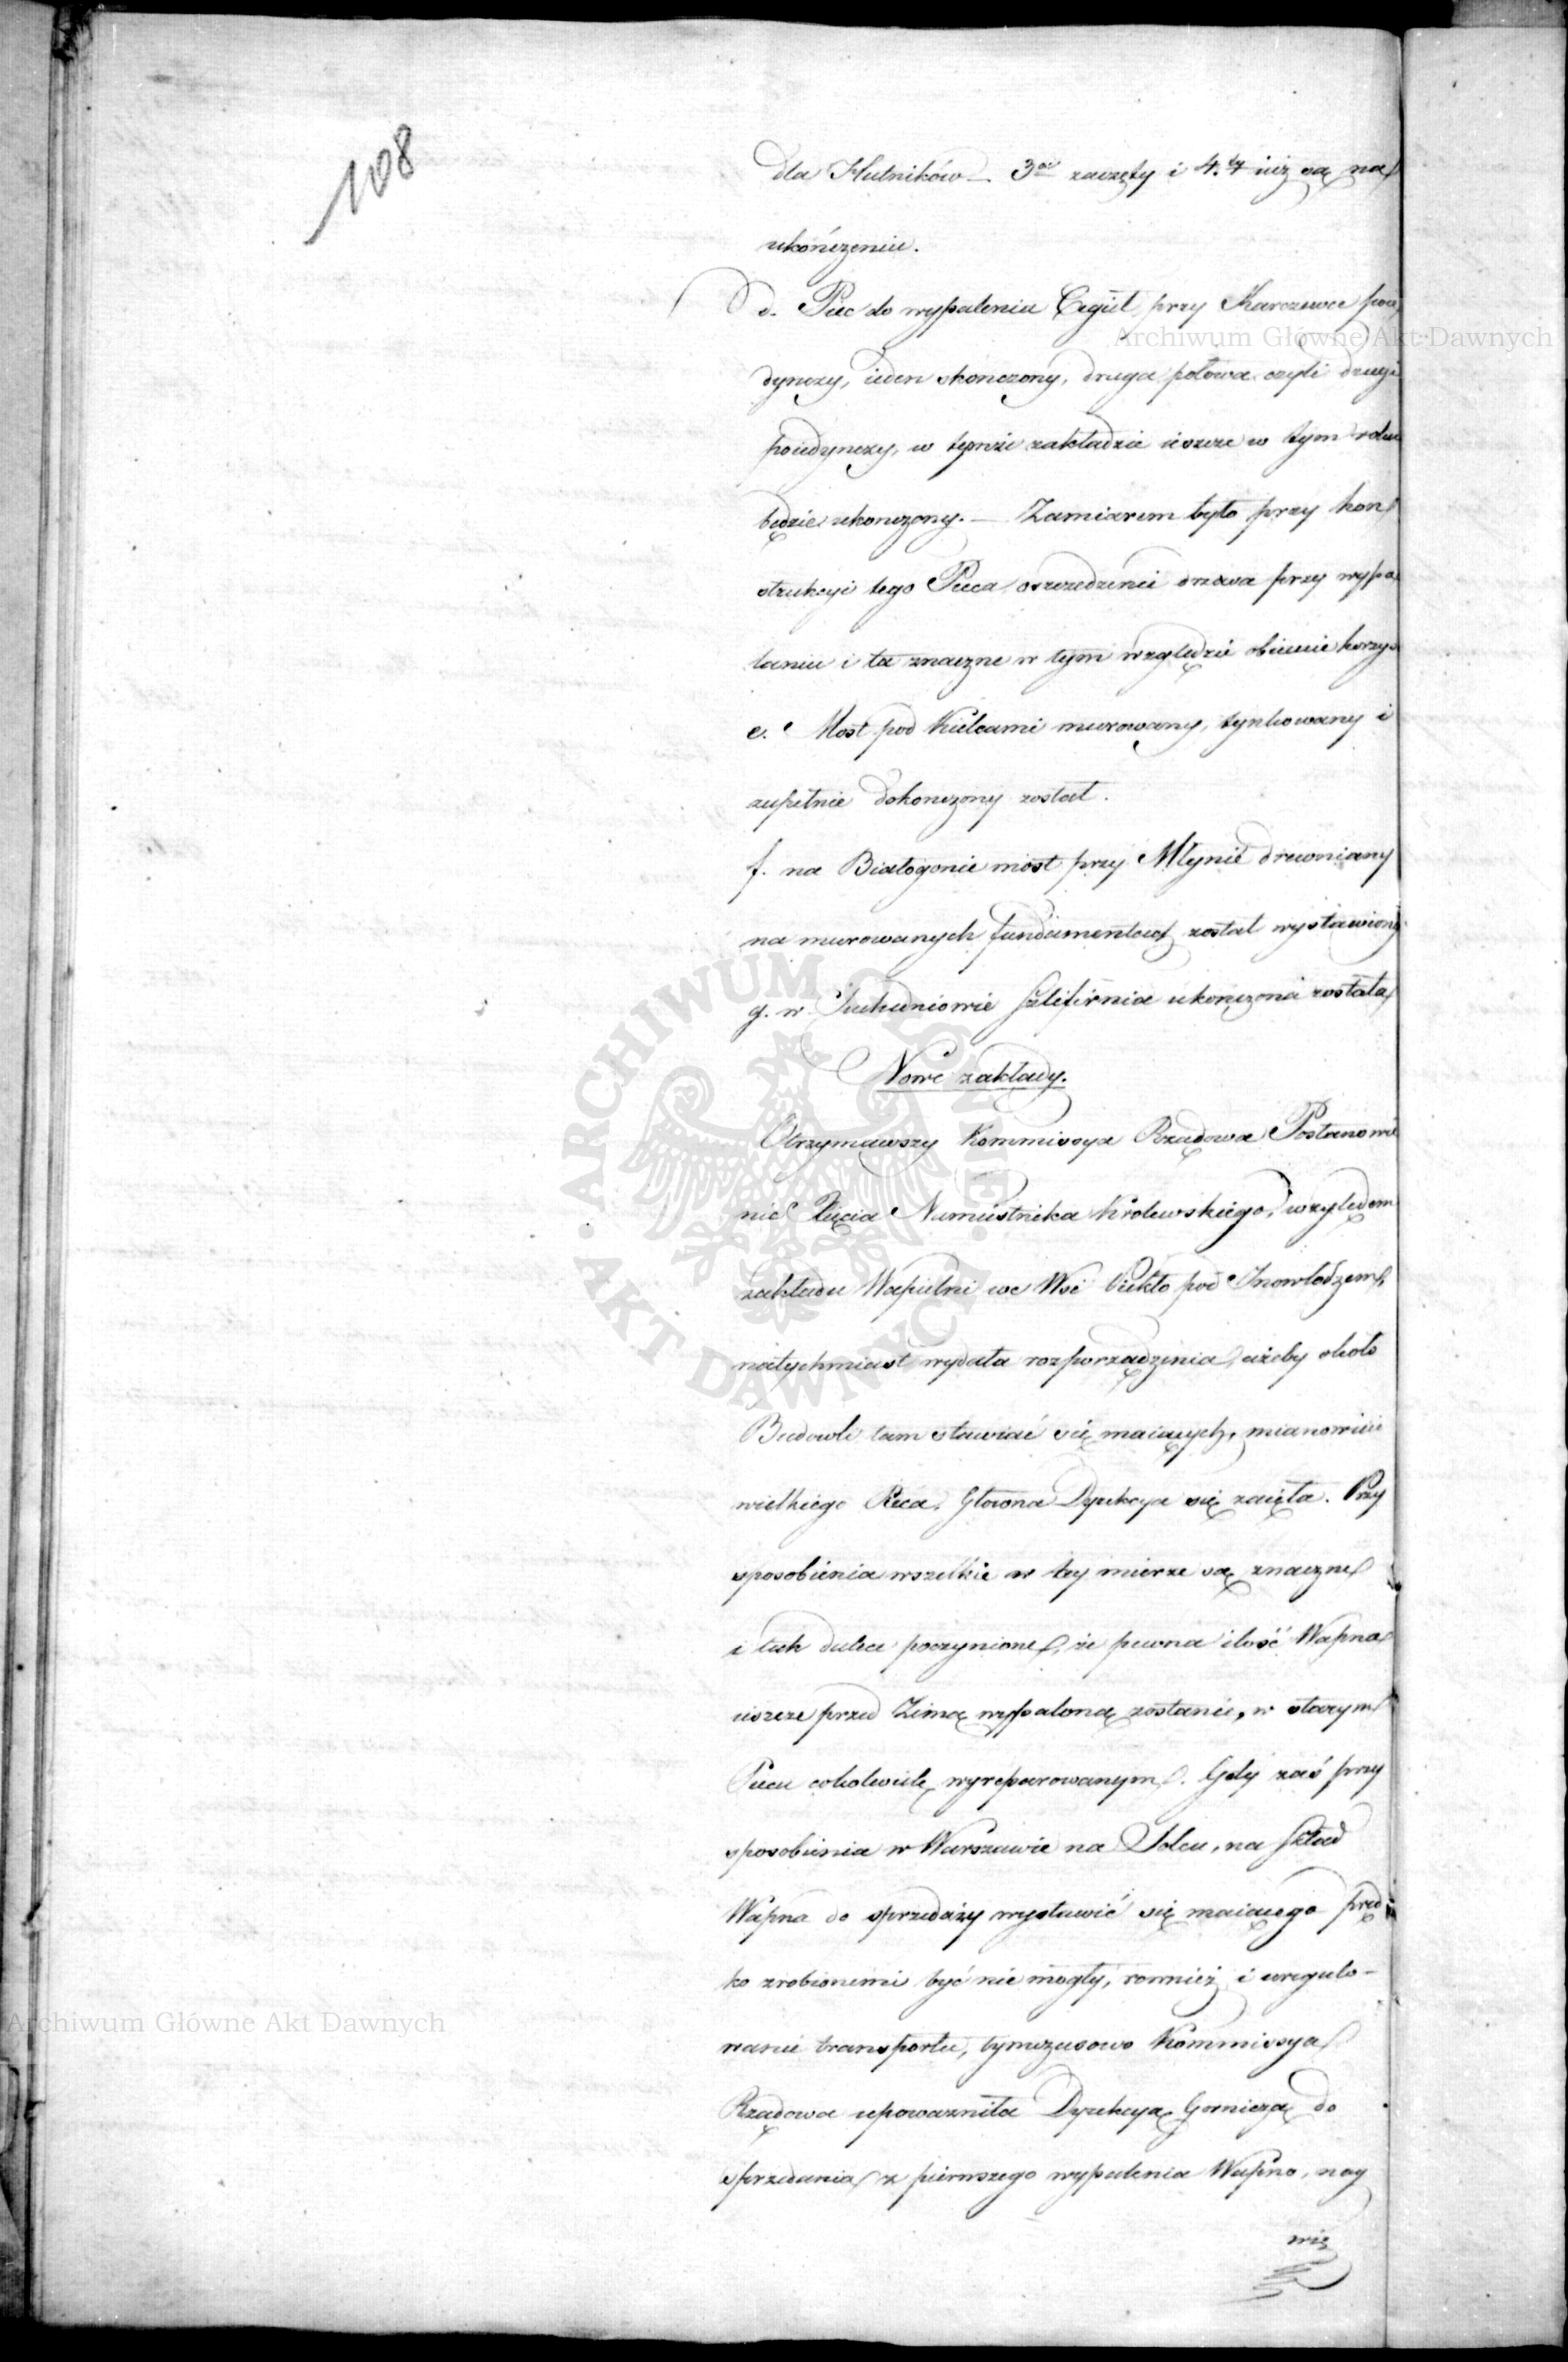 108
dla Hutników – 3ci zaczęty i 4.ty iuż są na
ukończeniu.
d. Piec do wypalenia Cegieł przy Karczówce poie
dynczy, ieden skonczony, druga połowa czyli drugi
poiedynczy, w temże zakładzie ieszcze w tym roku
będzie ukonczony. – Zamiarem było przy kon
strukcyi tego Pieca oszczedzenie drzewa przy wypa
laniu i te znaczne w tym względzie obiecuie korzys
e. Most pod Kielcami murowany, tynkowany i
zupełnie dokonczony został.
f. na Białogonie most przy Młynie drewniany
na murowanych fundamentach został wystawiony
g. w Suchedniowie Szlifiernia ukonczona została
Nowe zakłady.
Otrzymawszy Kommissya Rządowa Postanowie
nie Xięcia Namiestnika Królewskiego, względem
zakładu Wapielni we Wsi pod Inowłodzem,
natychmiast wydała rozporządzenia, ażeby około
Budowli tam stawiać się maiących, mianowicie
wielkiego Pieca, Głowna Dyrekcya się zaięła. Przy
sposobienia wszelkie w tey mierze są znaczne
i tak dalece poczynione, że pewna ilość Wapna
ieszcze przed Zimą wypaloną zostanie, w starym
Piecu cokolwiek wyreparowanym. Gdy zaś przy
sposobienia w Warszawie na Solcu, na Skład
Wapna do sprzedaży wystawić się maiącego pręd
ko zrobionemi być nie mogły, rownież i uregulo-
wanie transportu, tymczasowo Kommissya
Rządowa upoważniła Dyrekcyą Gorniczą do
sprzedania z pierwszego wypalenia Wapno, nay
wię
Archiwum Główne Akt Dawnych
Archiwum Główne Akt Dawnych
ARCHIWUM GŁÓWNE AKT DAWNYCH